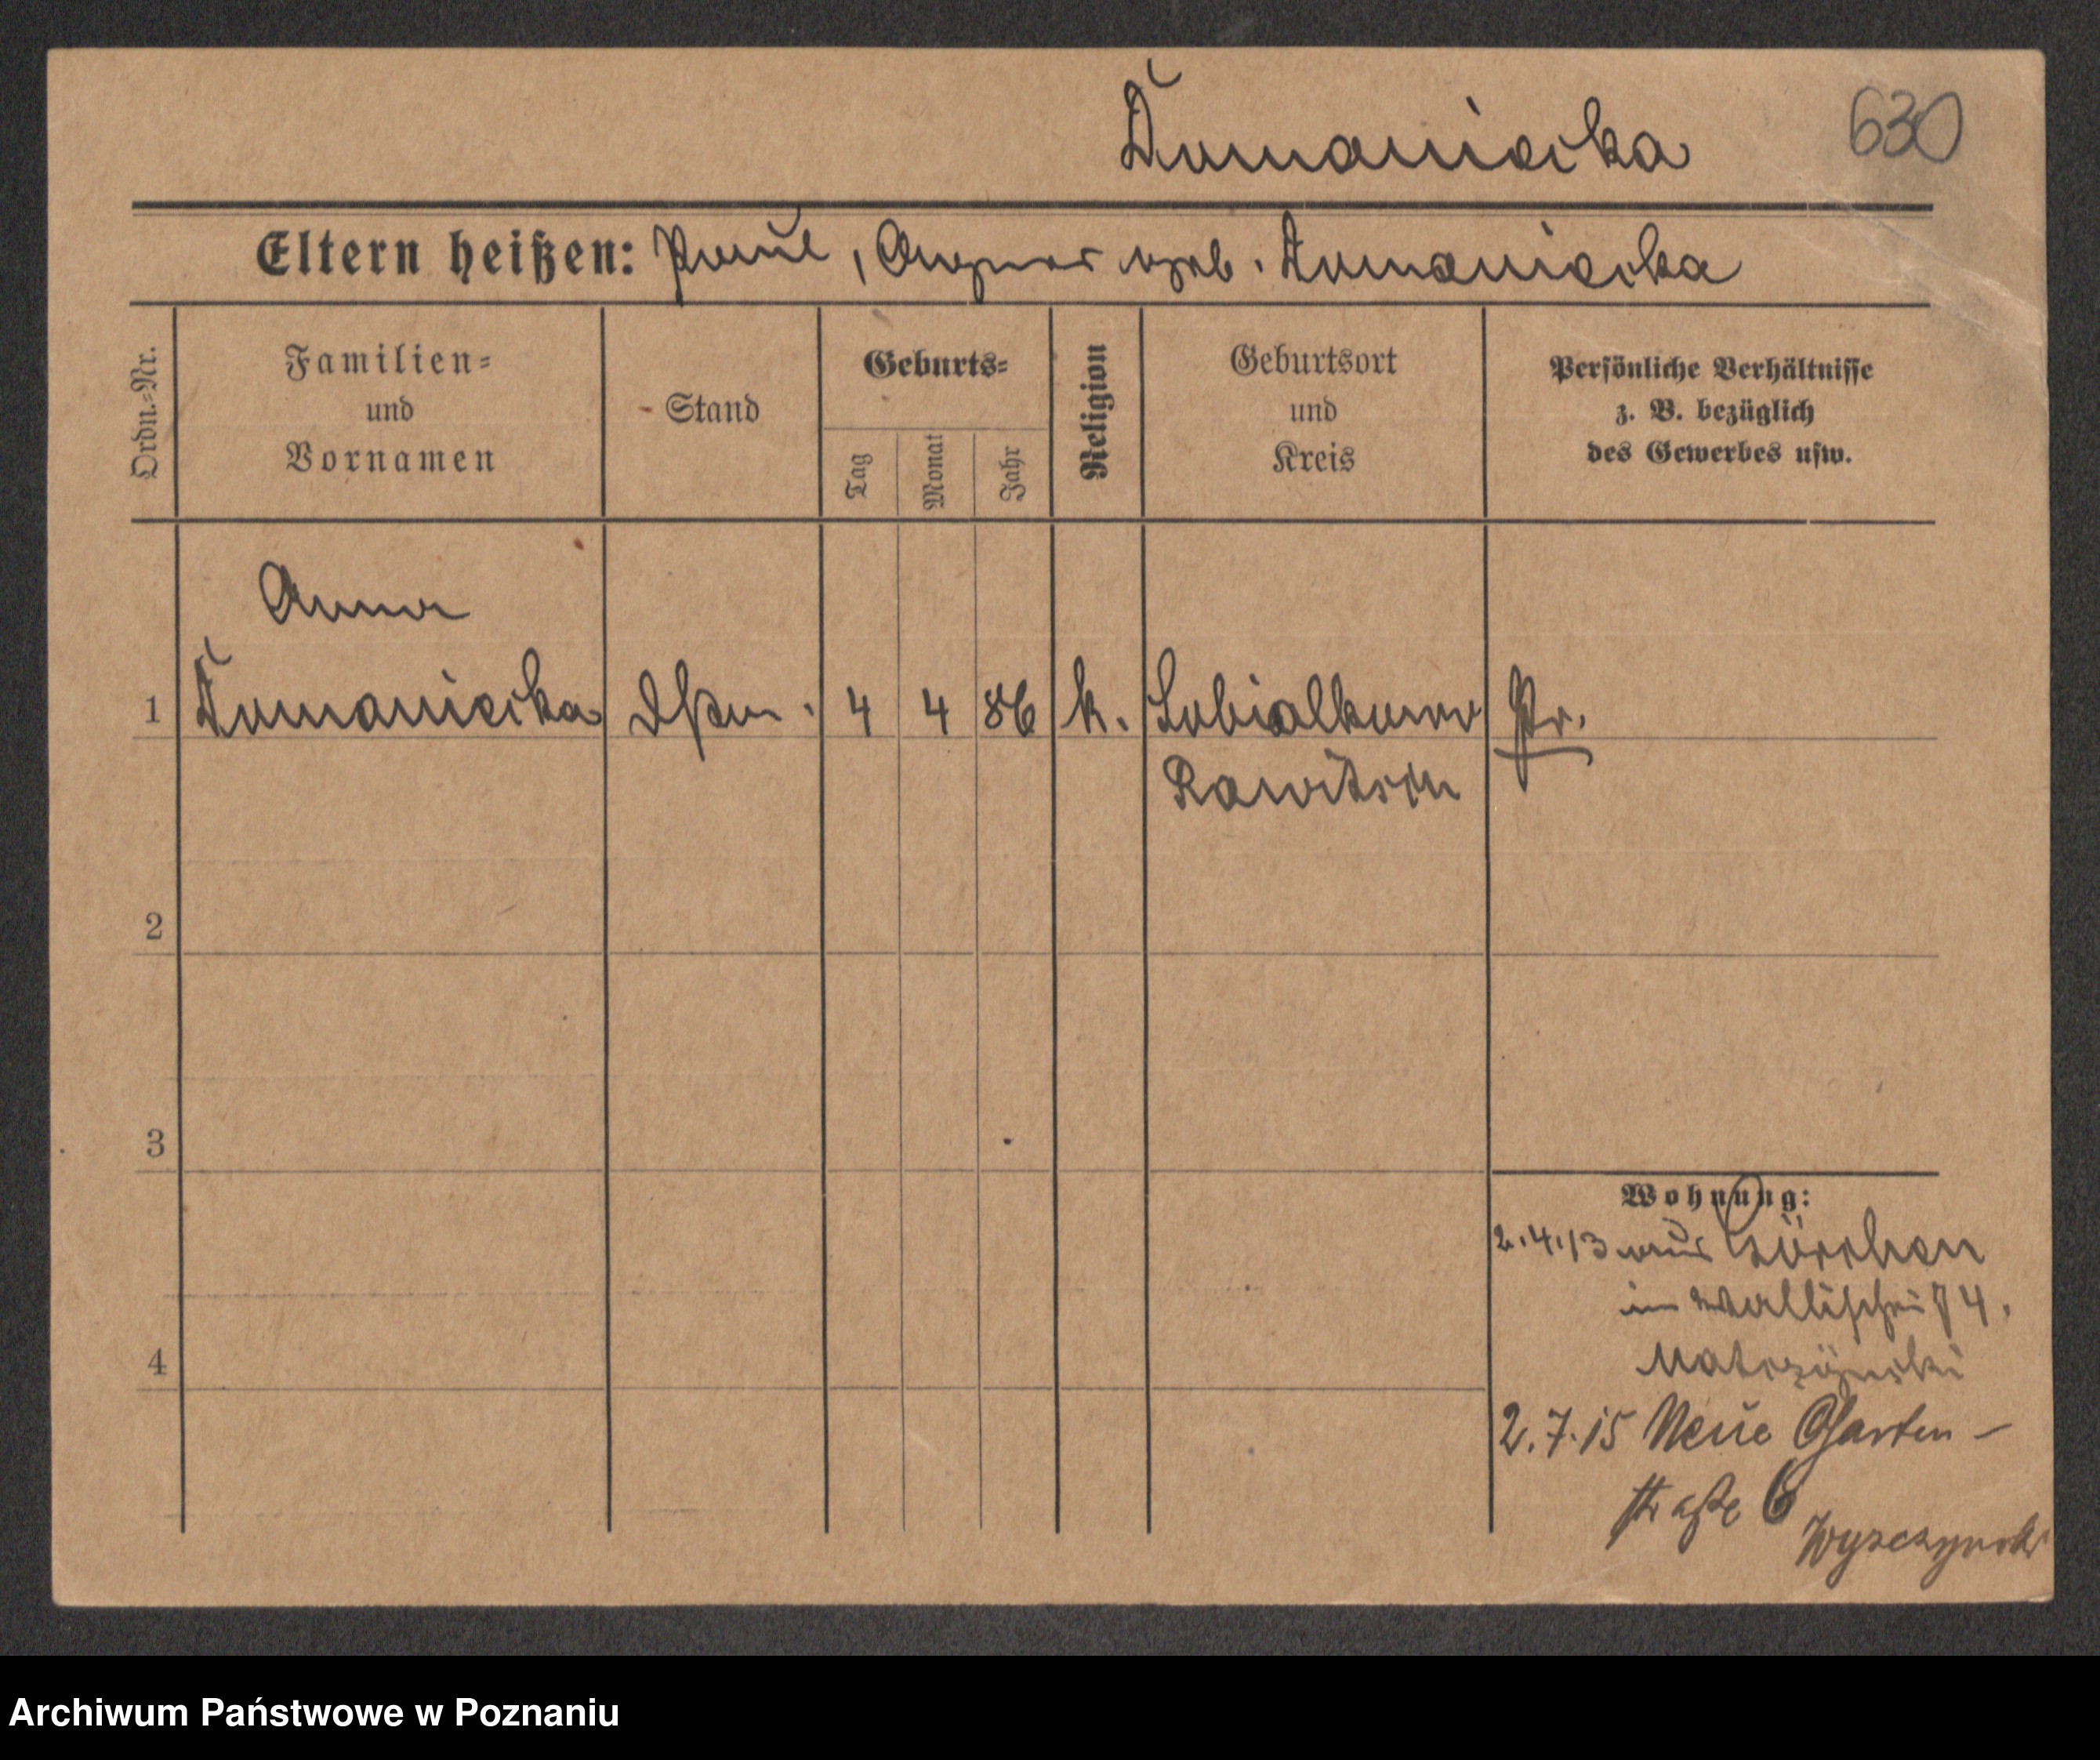 Domaniecka
630
Eltern heißen: Paul, Agnes geb. Domaniecka
Ordn.-Nr.
Familien-
und
Vornamen
Stand
Geburts-
Tag
Monat
Jahr
Religion
Geburtsort
und
Kreis
Persönliche Verhältnisse
z. B. bezüglich
des Gewerbes usw.
Anna
1 Domaniecka 4 4 86 k. Sobialkowo Pr.
Rawitsch
2
3
Wohnung:
2.4.13 aus Görchen
in Wallischei 74.
4
2.7.15 Neue Garten-
straße 6
Archiwum Państwowe w Poznaniu